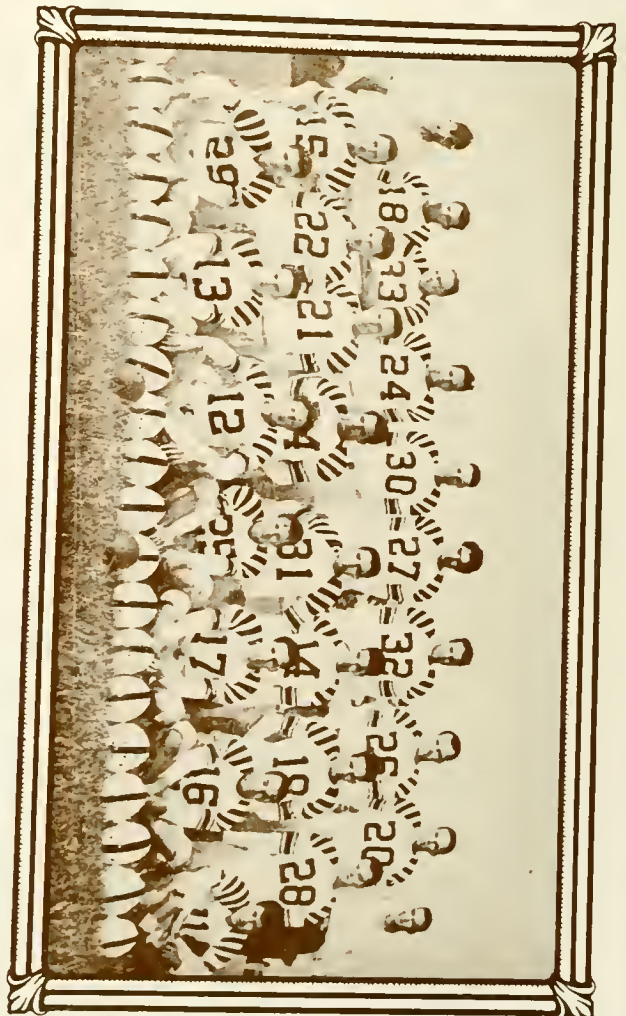 18 33 24 30 27 32 26 20
15 22 21 31 14 18 28
29 13 12 17 16